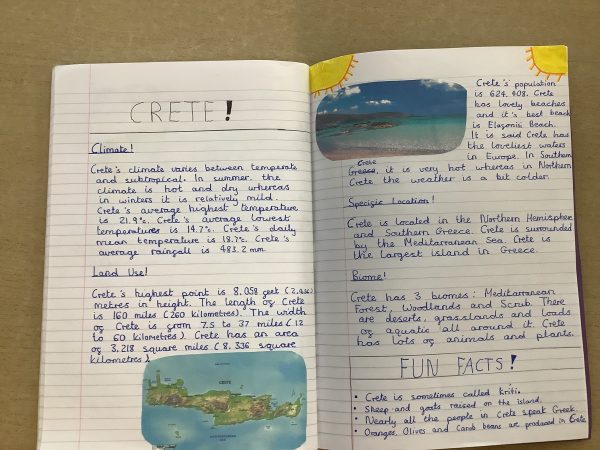 CRETE!
Climate!
Crete's climate varies between temperate
and subtropical. In summer, the
climate is hot and dry whereas
in winters it is relatively mild.
Crete's average highest temperature
is 21.9°c. Crete's average lowest
temperatures is 14.7°c. Crete's daily
mean temperature is 18.7°c. Crete's
average rainfall is 483.2mm.
Land Use!
Crete's highest point is 8,058 feet (2,456)
metres in height. The length of Crete
is 160 miles (260 kilometres). The width
of Crete is from 7.5 to 37 miles (12
to 60 kilometres). Crete has an area
of 3,218 square miles (8,336 square
kilometres)
CRETE
Crete's population
is 624,408. Crete
has lovely beaches
and it's best beach
is Elafonisi Beach.
It is said Crete has
the loveliest waters
in Europe. In Southern
Crete
Greece, it is very hot whereas in Northern
Crete the weather is a bit colder.
Specific Location!
Crete is located in the Northern Hemisphere
and Southern Greece. Crete is surrounded
by the Mediterranean Sea. Crete is
the largest island in Greece.
Biome!
Crete has 3 biomes: Mediterranean
Forest, Woodlands and Scrub. There
are deserts, grasslands and loads
of aquatic all around it. Crete
has lots of animals and plants.
FUN FACTS!
• Crete is sometimes called Kríti.
• Sheep and goats raised on the island.
• Nearly all the people in Crete speak Greek.
• Oranges, Olives and Carob beans are produced in Crete